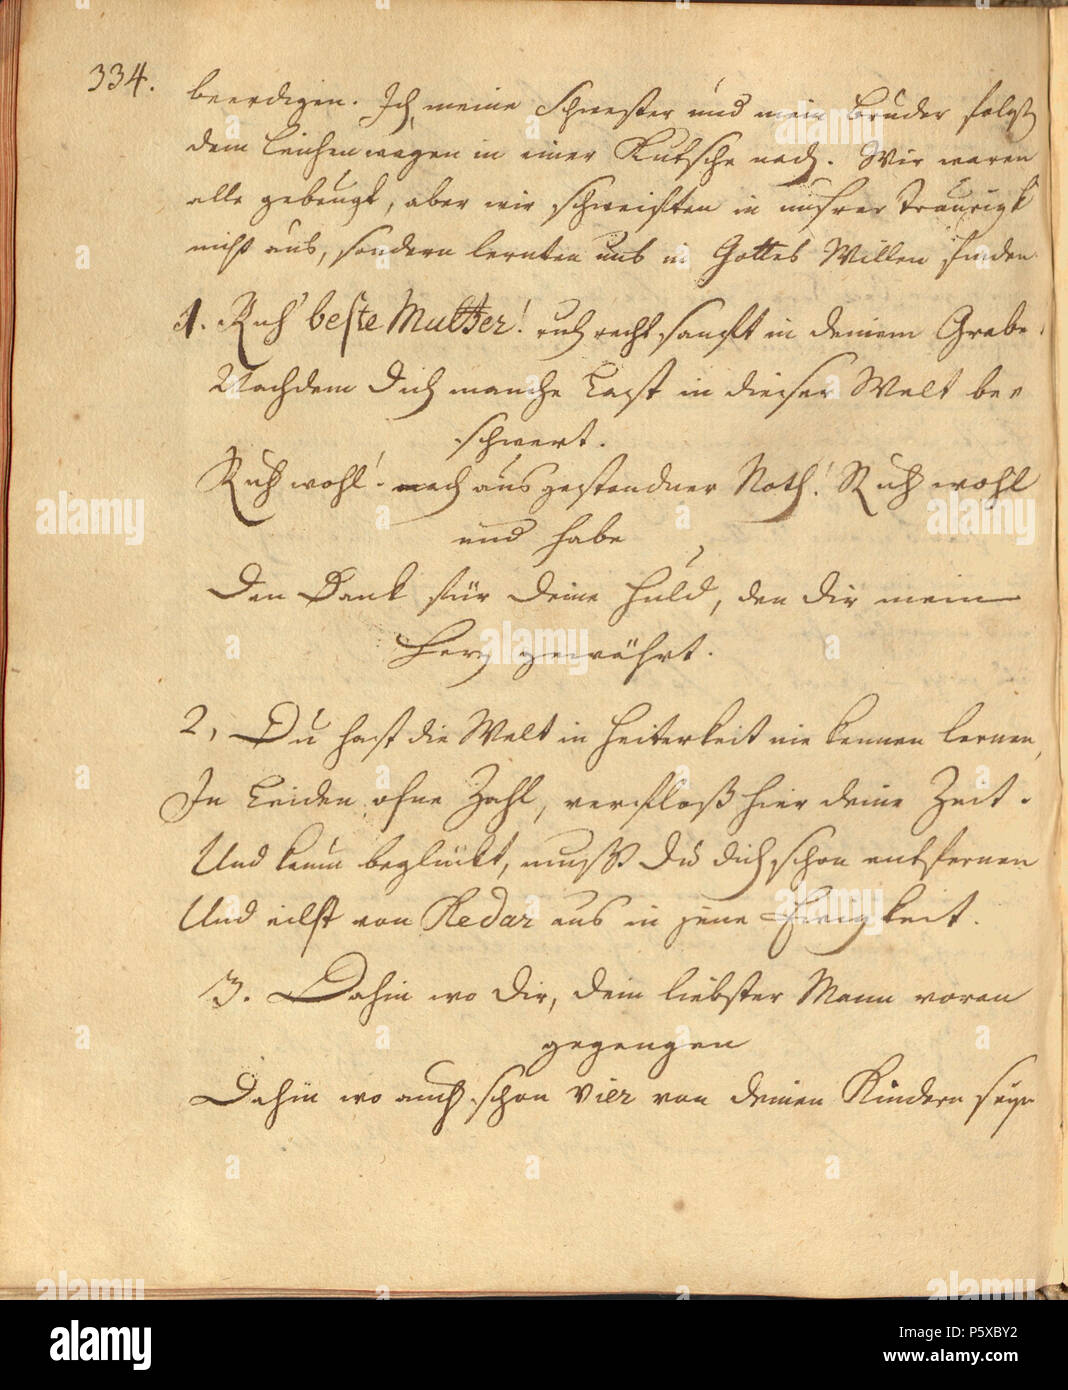 334.
beerdigen. Ich, meine Schwester und mein Bruder folgt
dem Leichenwagen in einer Kutsche nach. Wir waren
alle gebeugt, aber wir schweiften in unsrer Traurigk
nicht aus, sondern lernten uns in Gottes Willen finden
1. Ruh' beste Mutter! ruh recht sanft in deinem Grabe.
Nachdem Dich manche Last in dieser Welt be=
schwert.
Ruh wohl! nach ausgestandner Noth! Ruh wohl
und habe
Den Dank für Deine Huld, den Dir mein
Herz gewährt.
2. Du hast die Welt in Heiterkeit nie kennen lernen,
In Leiden ohne Zahl, verfloß hier deine Zeit.
Und kaum beglückt, mußt Du dich schon entfernen
Und eilst von Kedar aus in jene Ewigkeit.
3. Dahin wo Dir, dein liebster Mann voran
gegangen
Dahin wo auch schon vier von deinen Kindern seyn
alamy
alamy
alamy
alamy
alamy
alamy
alamy
alamy
Image ID: P5XBY2
www.alamy.com